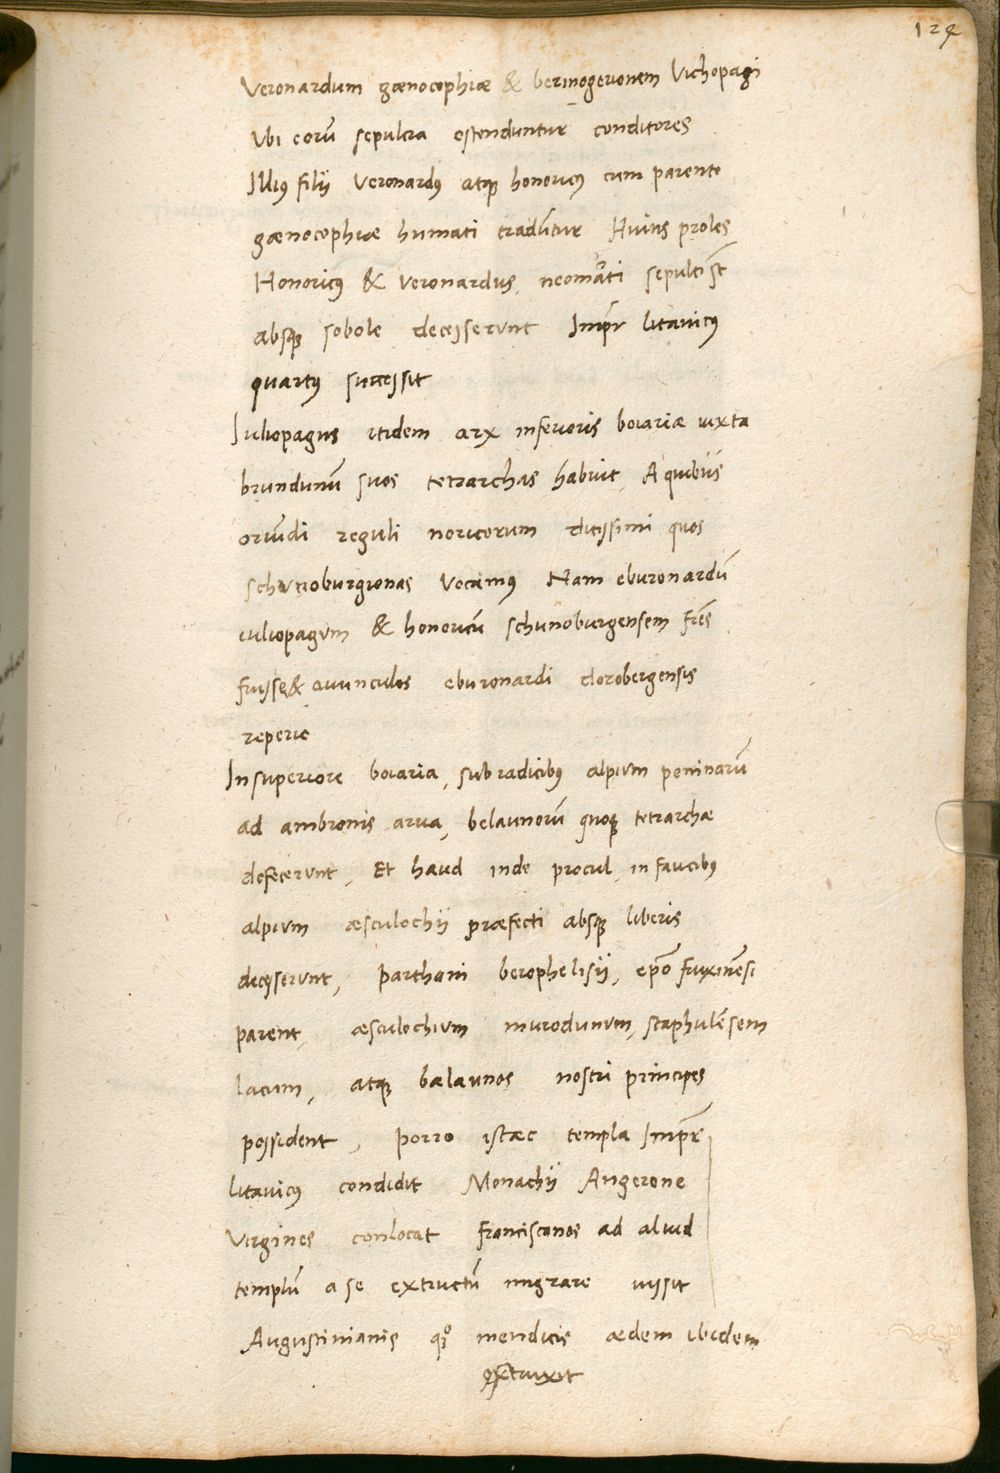 124
Veronardum gænocophiæ & bermogerionem Vichopagi
Vbi eorū sepulcra ostenduntur conditores
Illiꝰ filii Veronardꝰ atqꝫ honoricꝰ cum parente
gænocophiæ humati tradūtur Huius proles
Honoricꝰ & Veronardus, sepulti st̄
absqꝫ sobole decesservnt Impr̄ litauicꝰ
quartꝰ successit
Iuliopagus itidem arx inferioris boiariæ iuxta
brundunū suos tetrarchas habuit, A quibus
oriūdi reguli noricorum ditissimi quos
schvnoburgionas Vocamꝰ Nam eburonardū
iuliopagvm & honoricū schunoburgensem fr̄es
fuisse & auunculos eburonardi dorobergensis
reperio
In superiore boiaria, sub radicibꝰ alpium peninarū
ad ambronis arua, belaunorū quoqꝫ tetrarchæ
defecervnt, Et haud inde procul in faucibꝰ
alpivm æsculochii præfecti absqꝫ liberis
decesservnt, Parthani berophelisii, ep̄o fruxinēsi
parent, æsculochivm murodunvm, staphulēsem
lacum, atqꝫ balaunos nostri principes
possident, Porro istæc templa Impr̄
litauicꝰ condidit Monachii Angerone
Virgines conlocat franciscanos ad aliud
templū a se extructū migrare iussit
Augustinianis qꝫ mendicis ædem ibidem
extruxit